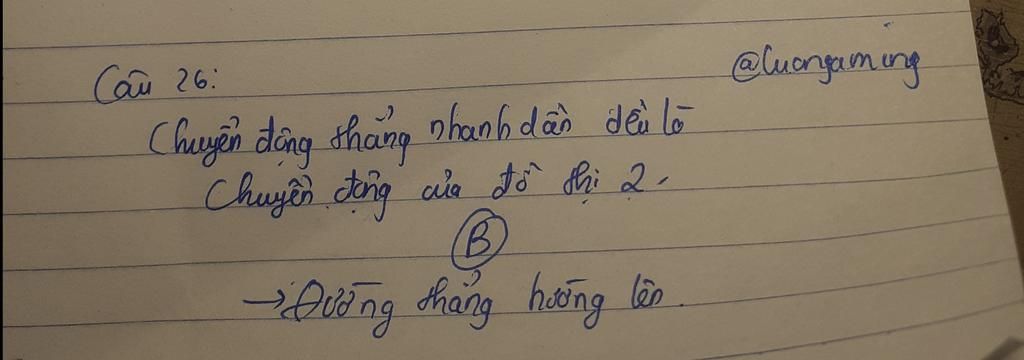 Câu 26:
@luongaming
Chuyển động thẳng nhanh dần đều là
Chuyển động của đồ thị 2.
B
→ Đường thẳng hướng lên.